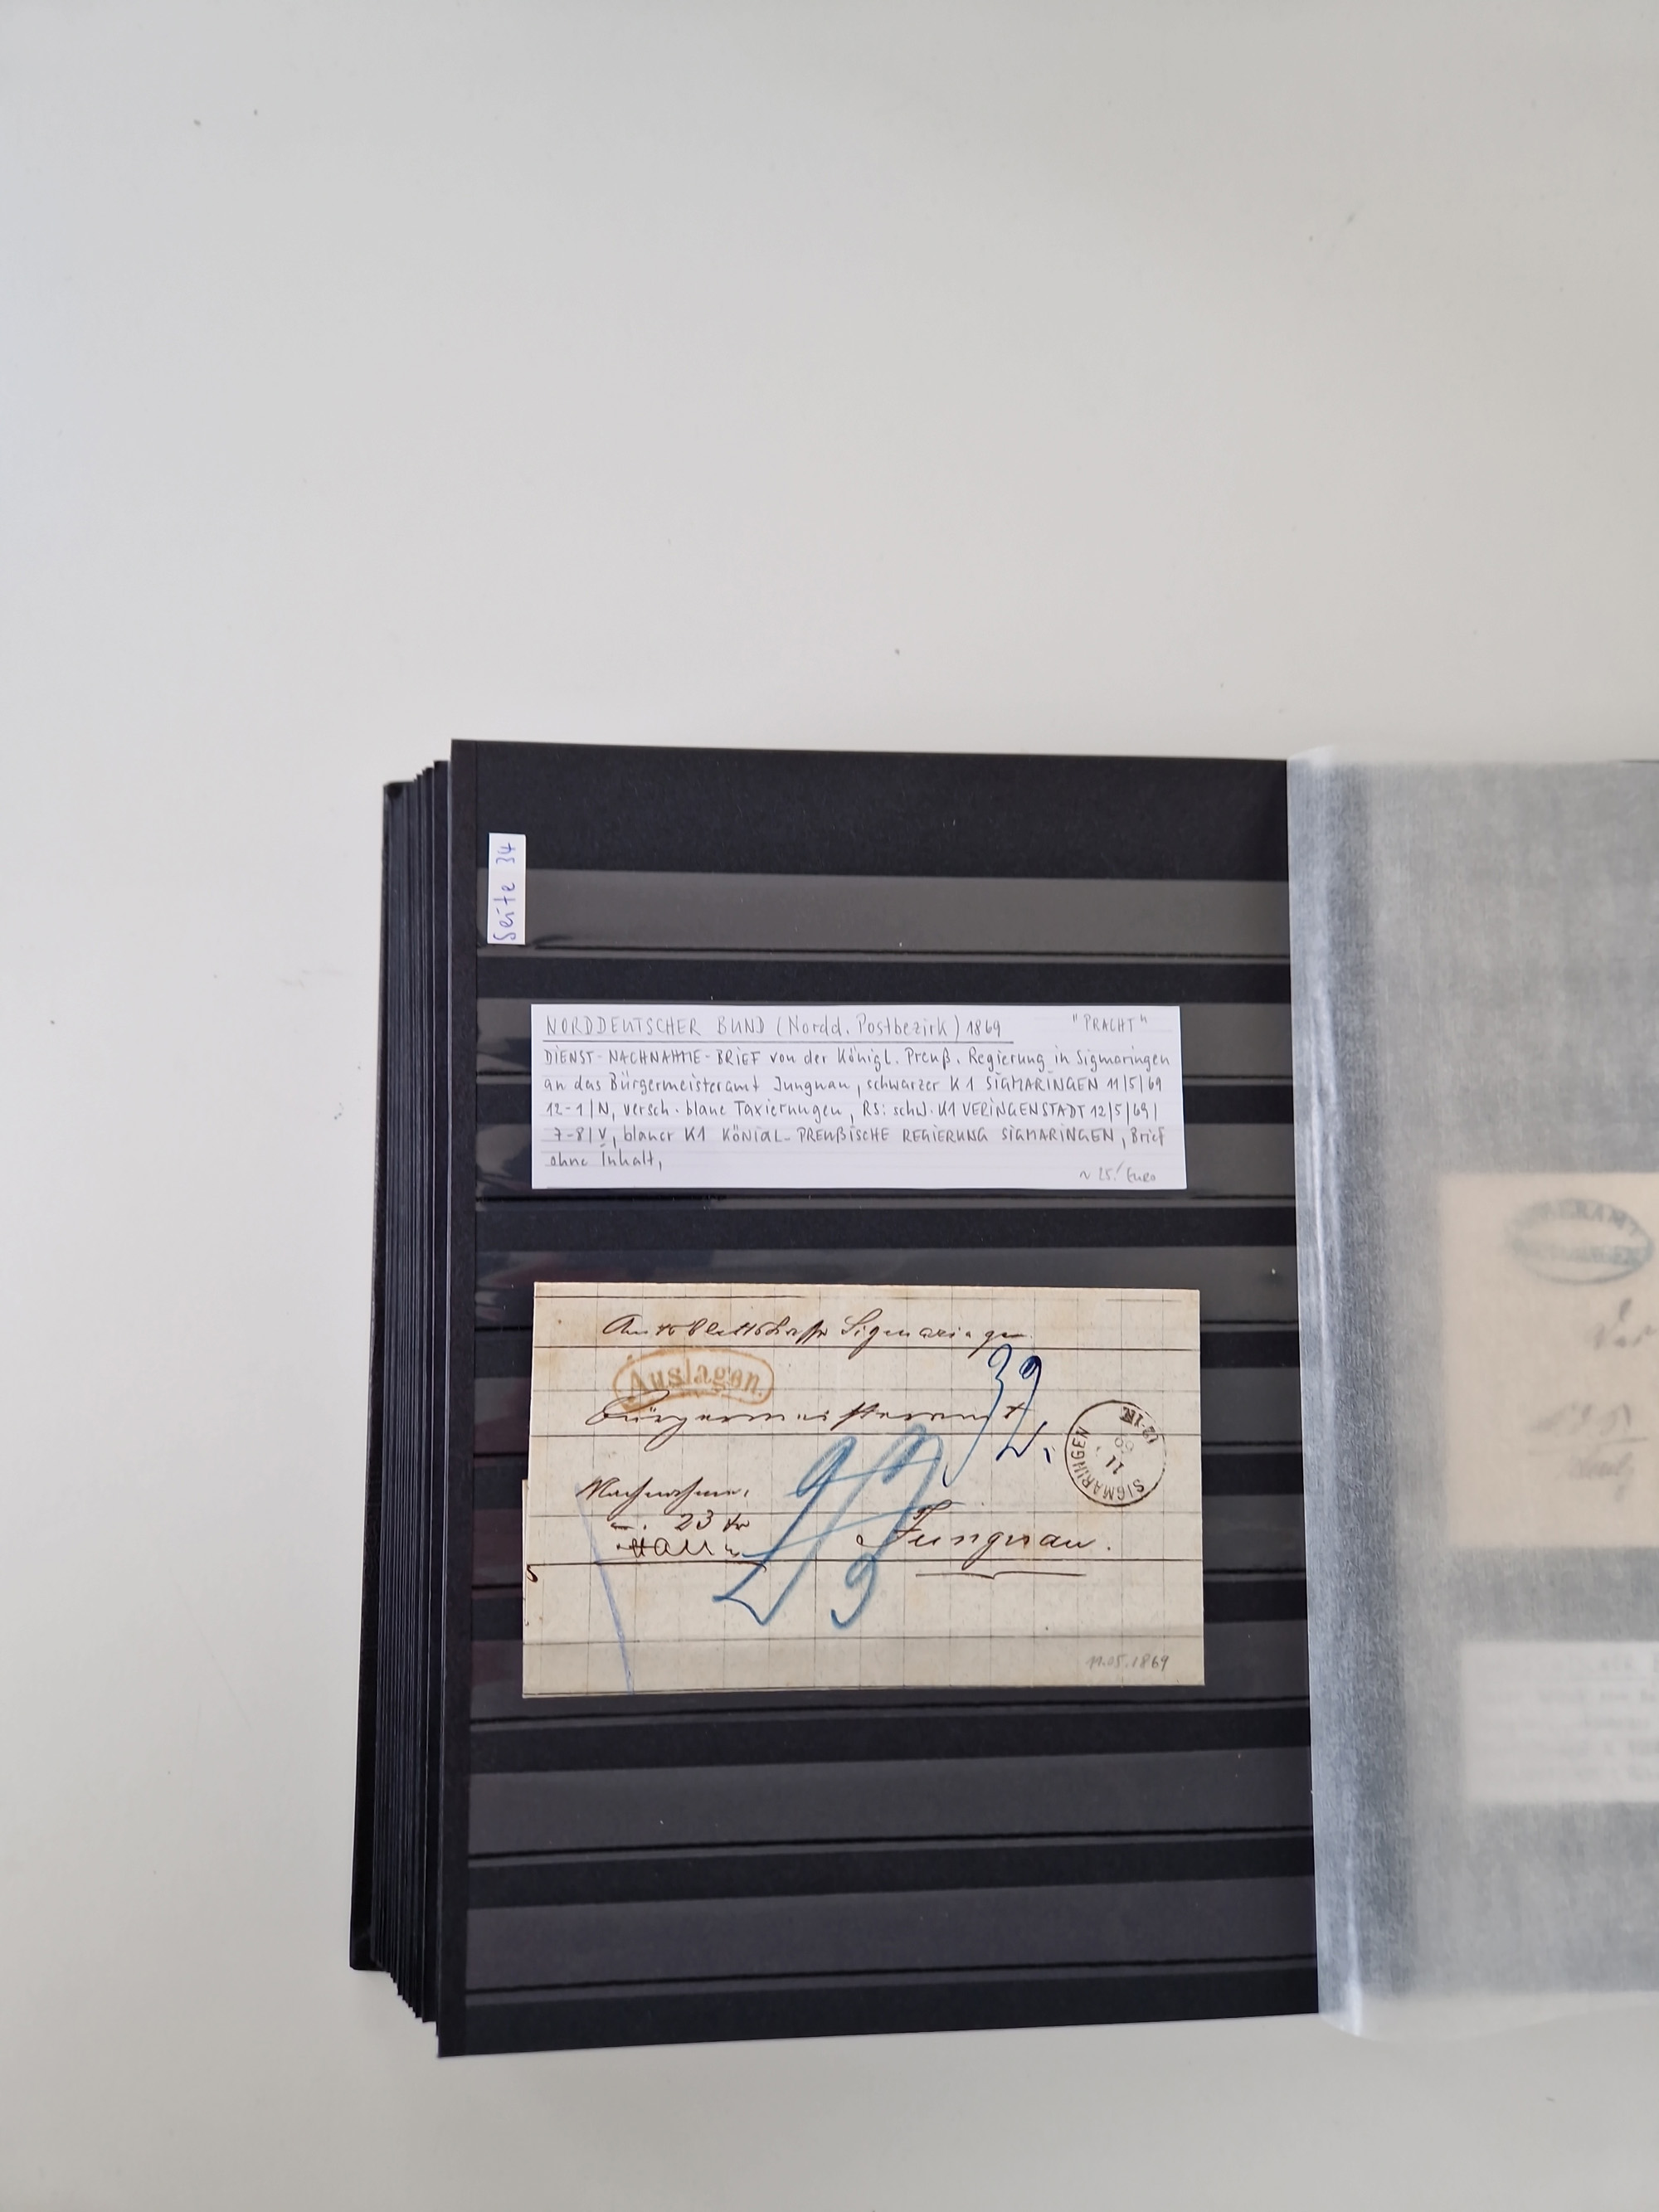 Seite 34
NORDDEUTSCHER BUND (Nordd. Postbezirk) 1869 "PRACHT"
DIENST-NACHNAHME-BRIEF von der Königl. Preuß. Regierung in Sigmaringen
an das Bürgermeisteramt Jungnau, schwarzer K1 SIGMARINGEN 11/5/69
12-1/N, versch. blaue Taxierungen, RS: schw. K1 VERINGENSTADT 12/5/69/
7-8/V, blauer K1 KÖNIGL-PREUßISCHE REGIERUNG SIGMARINGEN, Brief
ohne Inhalt,
~ 25.- Euro
Sigmaringen
Auslagen.
32
Bürgermeisteramt
SIGMARINGEN
11
12-1N
Nachnahme
23
Jungnau.
11.05.1869